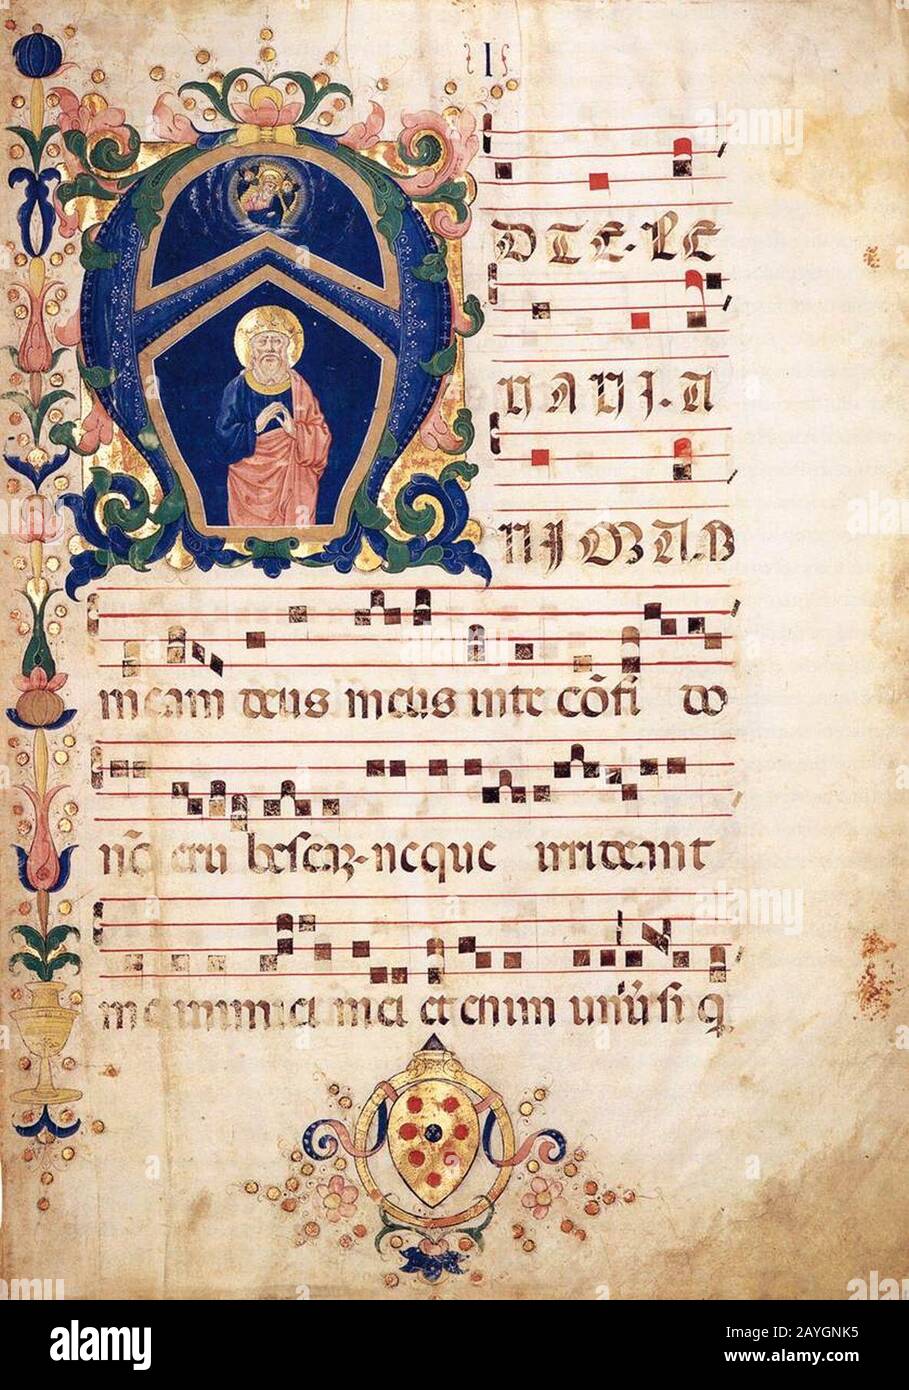 I
D TE. LE
VAVI. A
NIMAM
meam deus meus in te cōfi do
nō eru bescaz. neque irrideant
me inimici mei et enim uniūsi q
alamy
Image ID: 2AYGNK5
www.alamy.com